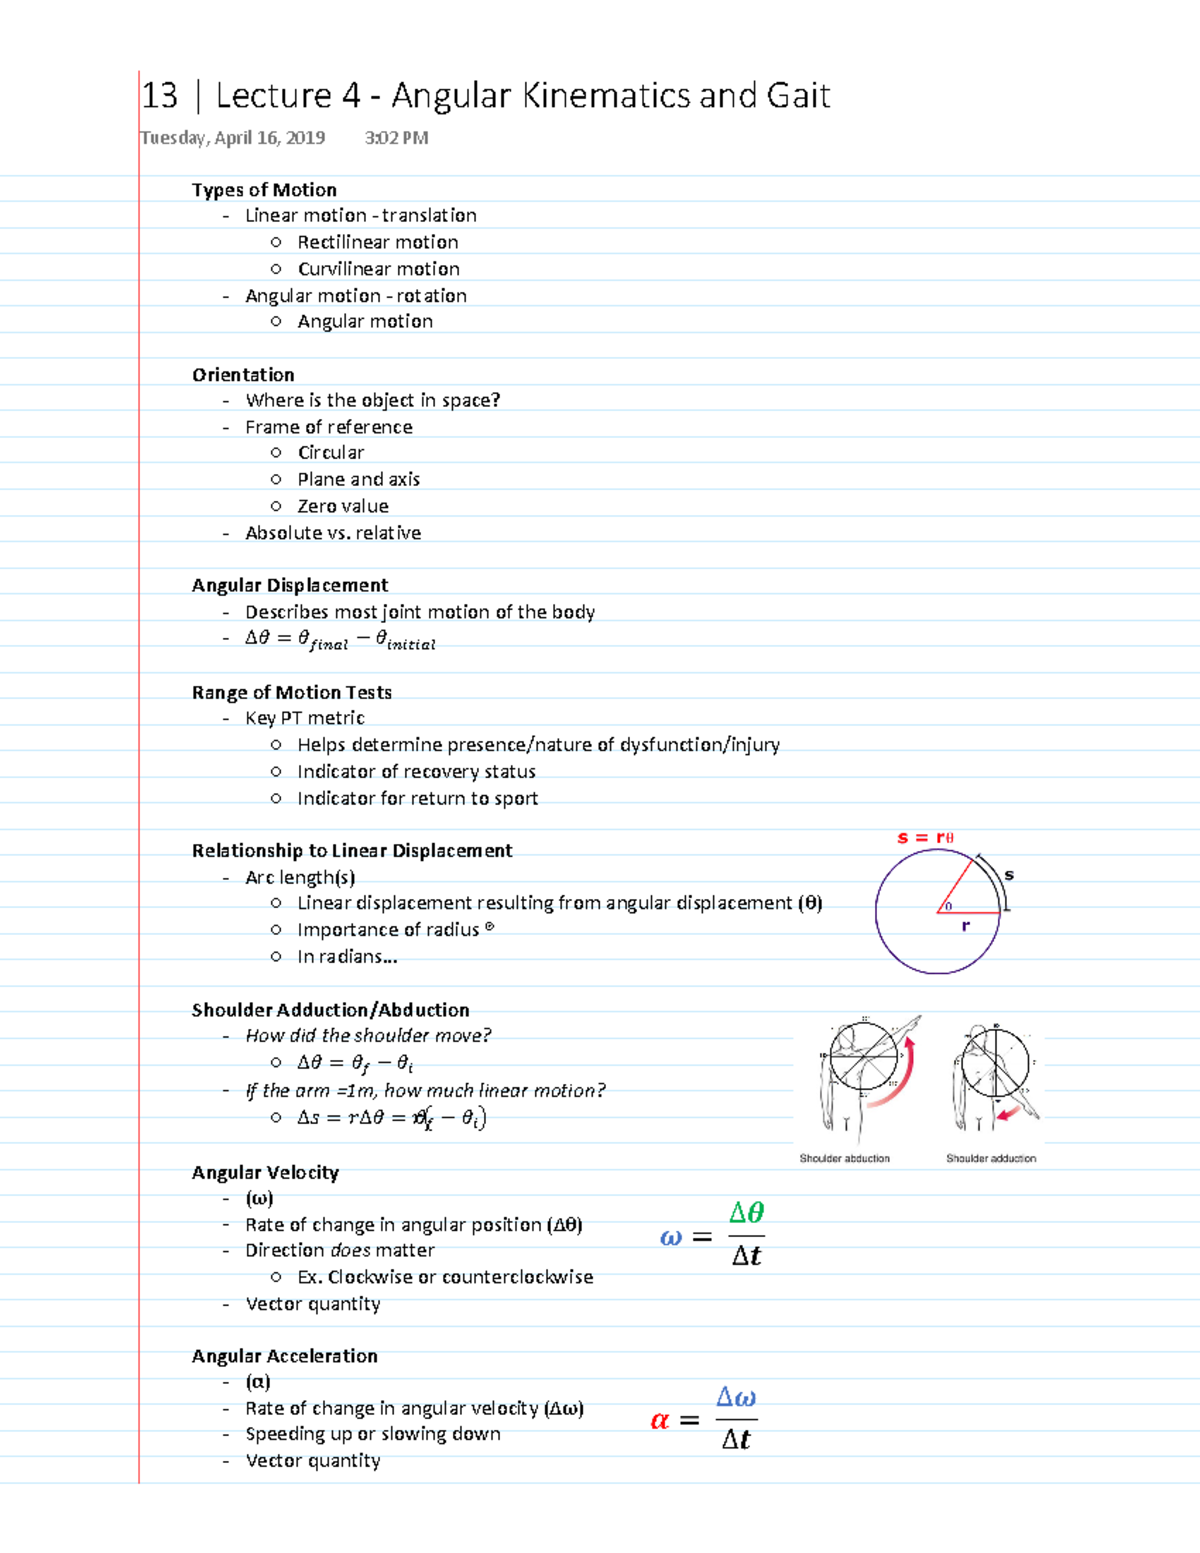 13 | Lecture 4 - Angular Kinematics and Gait
Tuesday, April 16, 2019 3:02 PM
Types of Motion
- Linear motion - translation
○ Rectilinear motion
○ Curvilinear motion
- Angular motion - rotation
○ Angular motion
Orientation
- Where is the object in space?
- Frame of reference
○ Circular
○ Plane and axis
○ Zero value
- Absolute vs. relative
Angular Displacement
- Describes most joint motion of the body
- Δθ = θ_final − θ_initial
Range of Motion Tests
- Key PT metric
○ Helps determine presence/nature of dysfunction/injury
○ Indicator of recovery status
○ Indicator for return to sport
Relationship to Linear Displacement
- Arc length(s)
○ Linear displacement resulting from angular displacement (θ)
○ Importance of radius
○ In radians...
s = rθ
s
θ
r
Shoulder Adduction/Abduction
- How did the shoulder move?
○ Δθ = θ_f − θ_i
- If the arm =1m, how much linear motion?
○ Δs = rΔθ = r(θ_f − θ_i)
Shoulder abduction Shoulder adduction
Angular Velocity
- (ω)
- Rate of change in angular position (Δθ)
- Direction does matter
○ Ex. Clockwise or counterclockwise
- Vector quantity
ω = Δθ / Δt
Angular Acceleration
- (α)
- Rate of change in angular velocity (Δω)
- Speeding up or slowing down
- Vector quantity
α = Δω / Δt